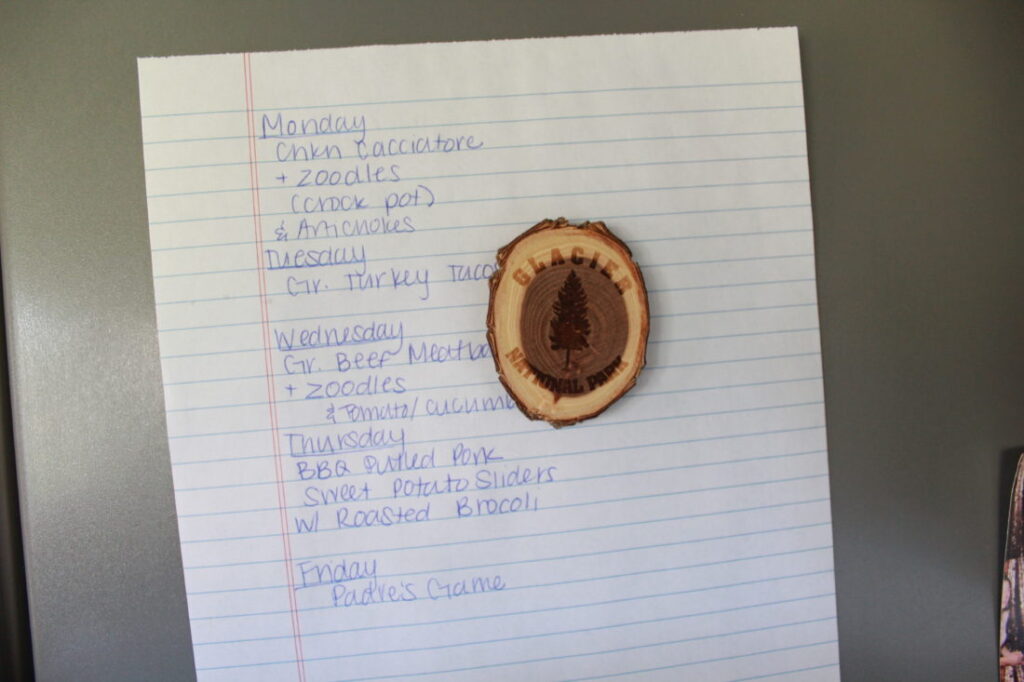 Monday
Chkn Cacciatore
+ Zoodles
(crock pot)
& Artichokes
Tuesday
Gr. Turkey Taco
Wednesday
Gr. Beef
+ Zoodles
& Tomato/
Thursday
BBQ Pulled Pork
Sweet Potato Sliders
w/ Roasted Brocoli
Friday
Padre's Game
GLACIER
NATIONAL PARK